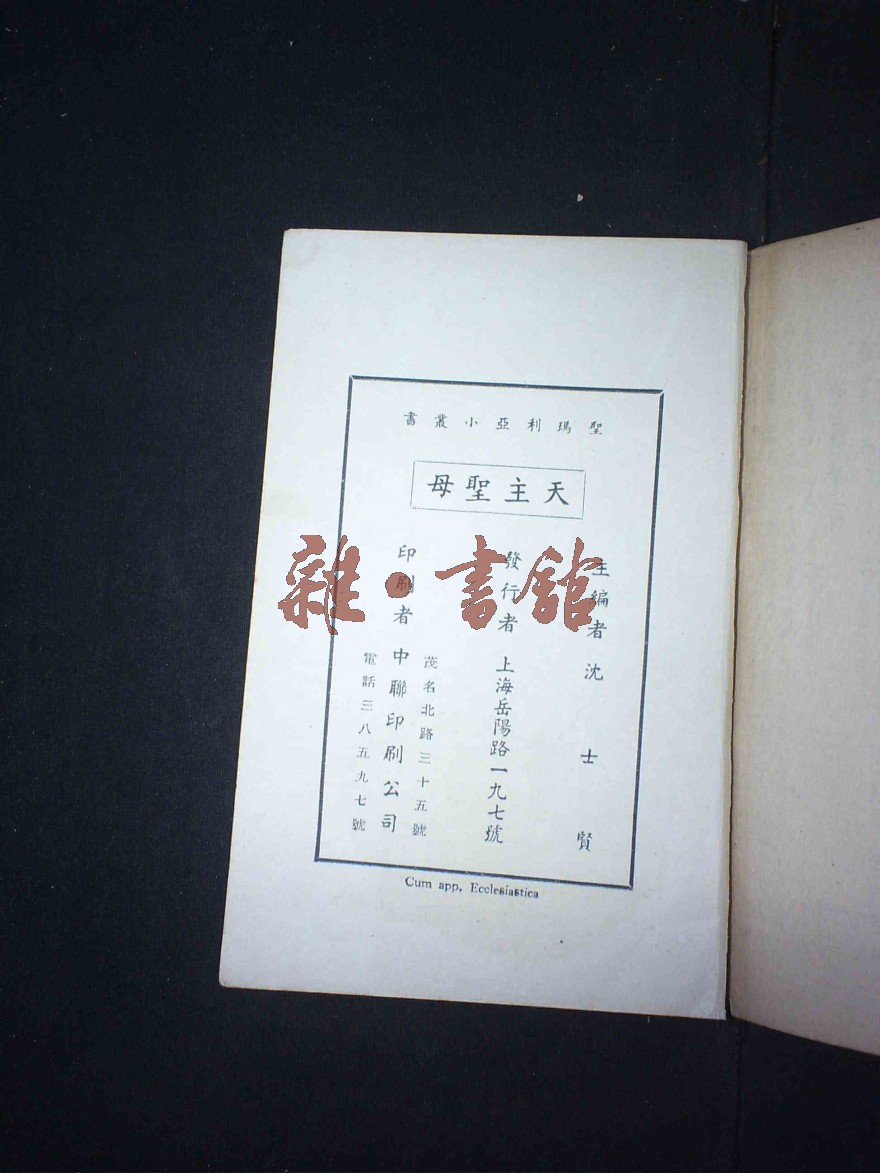 聖瑪利亞小叢書
天主聖母
主編者 沈士賢
發行者 上海岳陽路一九七號
茂名北路三十五號
印刷者 中聯印刷公司
電話三八五九七號
Cum app. Ecclesiastica
雜·書館